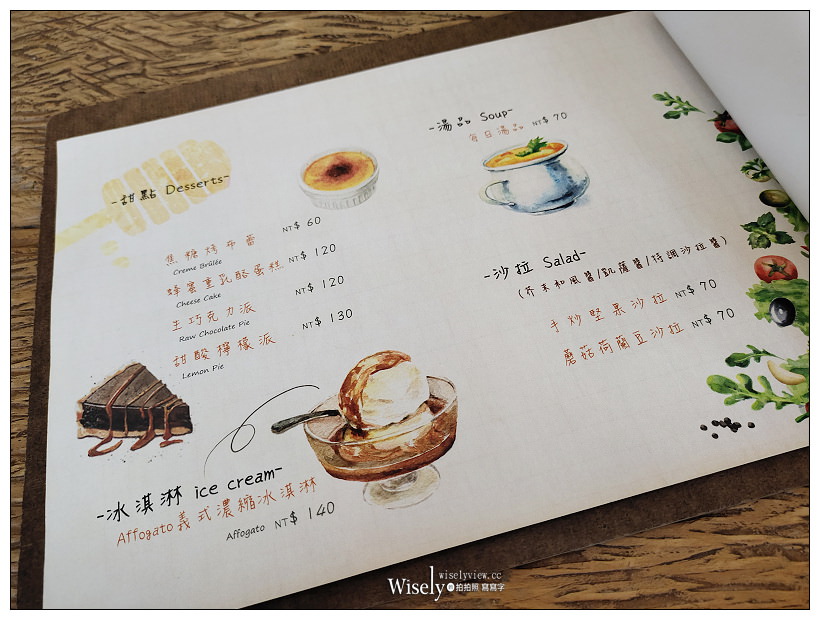 -甜點 Desserts-
焦糖烤布蕾 NT$ 60
Creme Brûlée
蜂蜜重乳酪蛋糕 NT$ 120
Cheese Cake
生巧克力派 NT$ 120
Raw Chocolate Pie
甜酸檸檬派 NT$ 130
Lemon Pie
-冰淇淋 ice cream-
Affogato義式濃縮冰淇淋
Affogato NT$ 140
-湯品 Soup-
每日湯品 NT$ 70
-沙拉 Salad-
(芥末和風醬/凱薩醬/特調沙拉醬)
手炒堅果沙拉 NT$ 70
蘑菇荷蘭豆沙拉 NT$ 70
wiselyview.cc
Wisely の 拍拍照 寫寫字